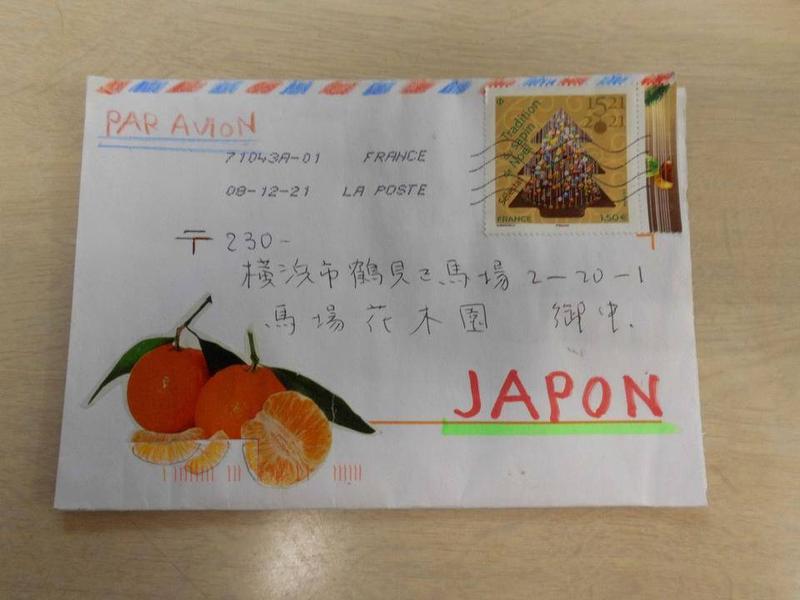 PAR AVION
71043A-01 FRANCE
08-12-21 LA POSTE
1521
2021
Tradition
du sapin
de Noël
FRANCE 1,50€
〒230-
横浜市鶴見区馬場2-20-1
馬場花木園 御中.
JAPON